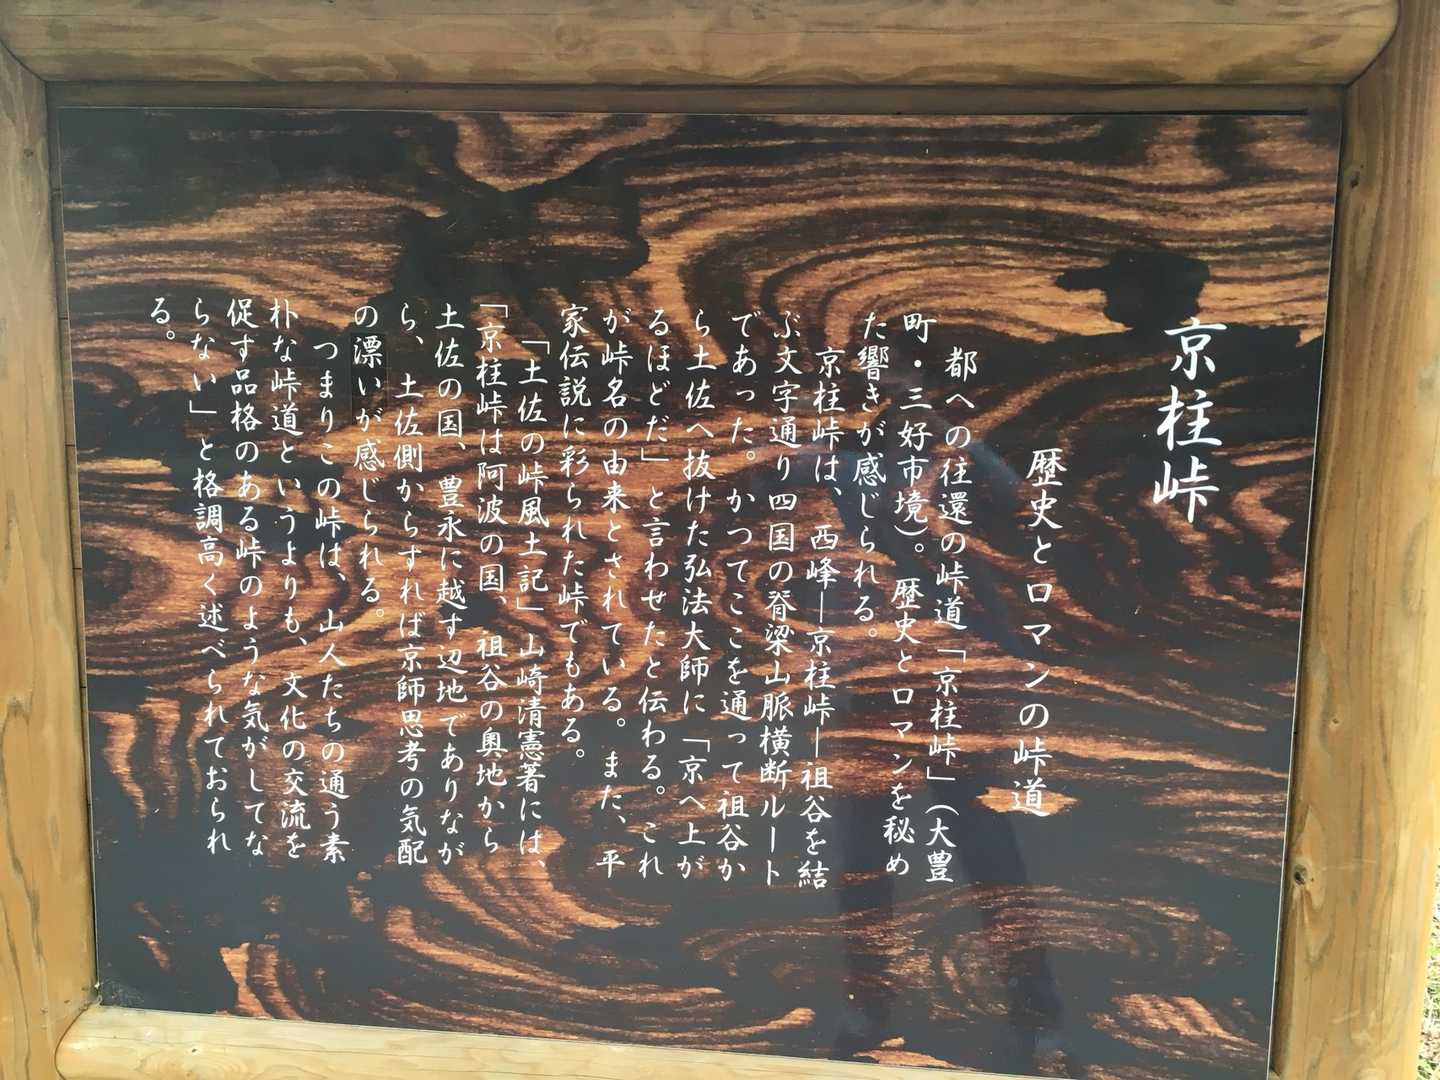 京柱峠
歴史とロマンの峠道
都への往還の峠道「京柱峠」(大豊
町・三好市境)。歴史とロマンを秘め
た響きが感じられる。
京柱峠は、西峰―京柱峠―祖谷を結
ぶ文字通り四国の脊梁山脈横断ルート
であった。かつてここを通って祖谷か
ら土佐へ抜けた弘法大師に「京へ上が
るほどだ」と言わせたと伝わる。これ
が峠名の由来とされている。また、平
家伝説に彩られた峠でもある。
「土佐の峠風土記」山崎清憲著には、
「京柱峠は阿波の国、祖谷の奥地から
土佐の国、豊永に越す辺地でありなが
ら、土佐側からすれば京師思考の気配
の漂いが感じられる。
つまりこの峠は、山人たちの通う素
朴な峠道というよりも、文化の交流を
促す品格のある峠のような気がしてな
らない」と格調高く述べられておられ
る。